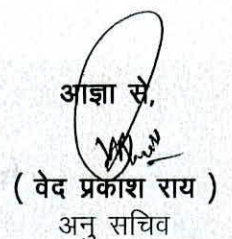 आज्ञा से,
( वेद प्रकाश राय )
अनु सचिव